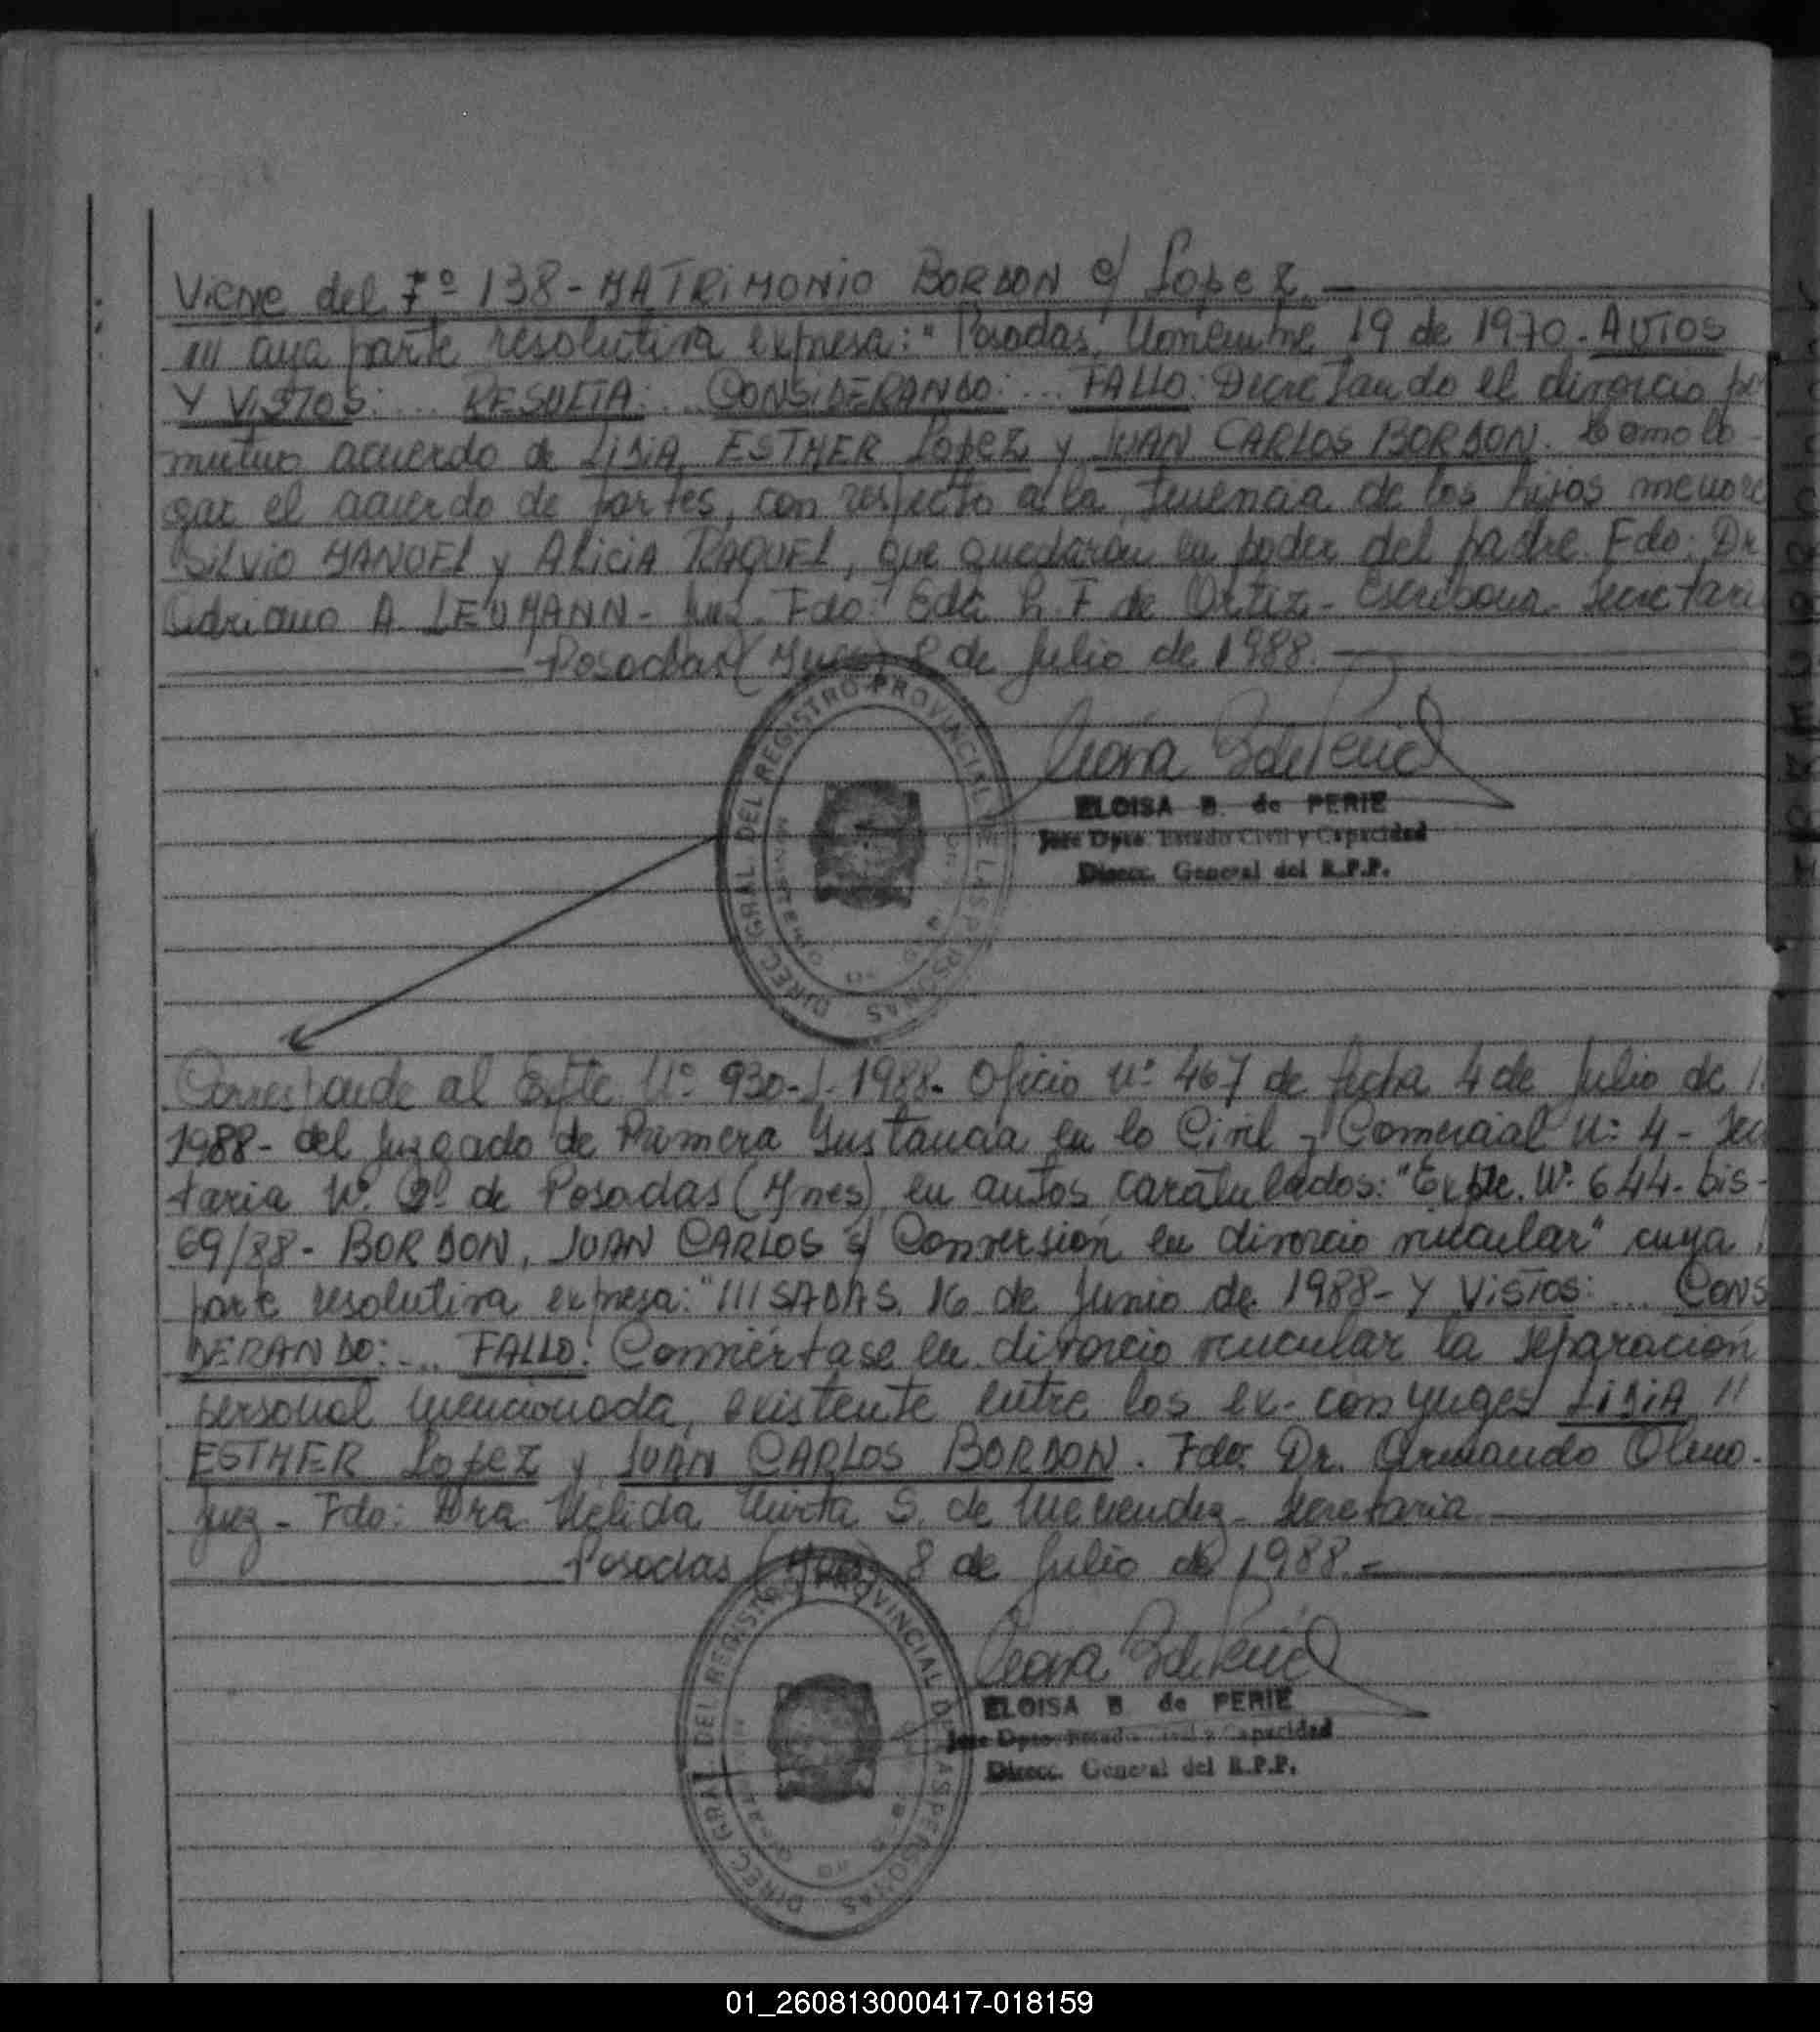 Viene del Fº 138 - MATRIMONIO BORDON c/ Lopez.
/// cuya parte resolutiva expresa: "Posadas, Noviembre 19 de 1970. AUTOS
Y VISTOS: ... RESULTA: ... CONSIDERANDO: ... FALLO: Decretando el divorcio por
mutuo acuerdo de LIDIA ESTHER Lopez y JUAN CARLOS BORDON. Homolo-
gar el acuerdo de partes, con respecto a la tenencia de los hijos menores
Silvio MANUEL y Alicia RAQUEL, que quedarán en poder del padre. Fdo: Dr
Adriano A. LEUMANN - Juez. Fdo: Eda h. F. de Ortiz - Escribana - Secretaria
Posadas (Mnes) 8 de Julio de 1988.
DIREC. GRAL. DEL REGISTRO PROVINCIAL DE LAS PERSONAS
ELOISA B. de PERIE
Jefe Dpto. Estado Civil y Capacidad
Direcc. General del R.P.P.
Corresponde al Expte Nº 930-L-1988. Oficio Nº 467 de fecha 4 de Julio de
1988 - del Juzgado de Primera Instancia en lo Civil y Comercial Nº 4 - Sec
taria Nº 2 de Posadas (Mnes), en autos caratulados: "Expte. Nº 644-bis-
69/88 - BORDON, JUAN CARLOS s/ Conversión en divorcio vincular" cuya
parte resolutiva expresa: "///SADAS, 16 de Junio de 1988 - Y VISTOS: ... CONS
DERANDO: ... FALLO: Conviértase en divorcio vincular la separación
personal mencionada, existente entre los ex-conyuges LIDIA //
ESTHER Lopez y JUAN CARLOS BORDON. Fdo: Dr. Armando Olmo.
Juez - Fdo: Dra Nelida Mirta S. de Menendez - Secretaria
Posadas (Mnes) 8 de Julio de 1988.-
DIREC. GRAL. DEL REGISTRO PROVINCIAL DE LAS PERSONAS
ELOISA B de PERIE
Jefe Dpto. Estado Civil y Capacidad
Direcc. General del R.P.P.
01_260813000417-018159